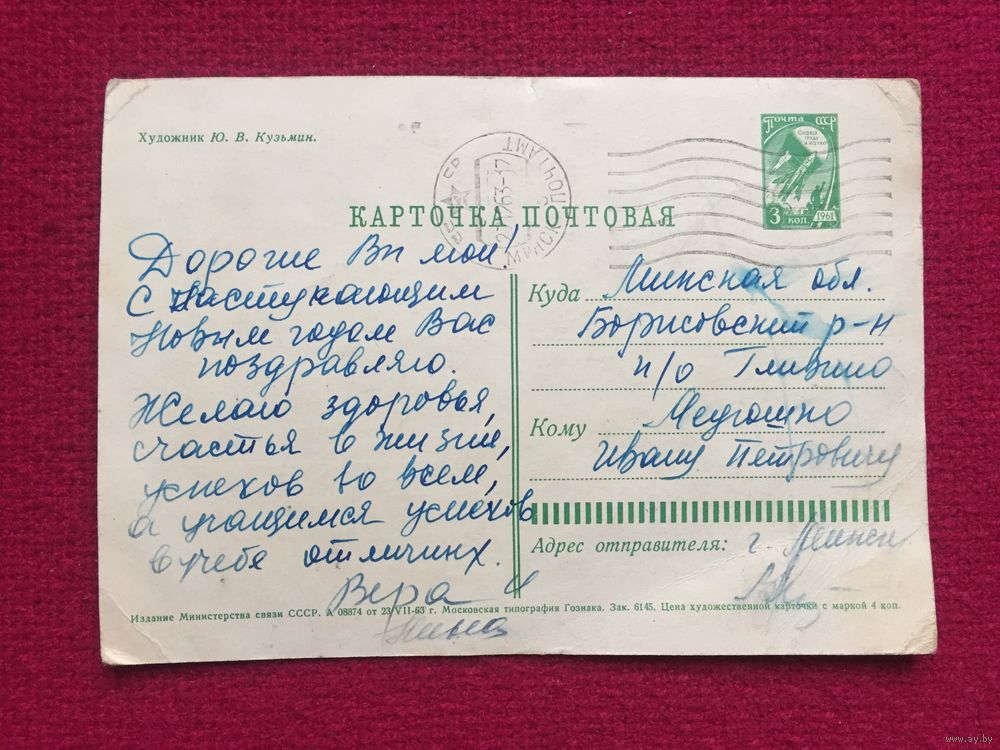 Художник Ю. В. Кузьмин.
Почта СССР
Слава
труду
и науке
3 коп. 1961
МИНСК ПОЧТАМТ
63-17
КАРТОЧКА ПОЧТОВАЯ
Дорогие Вы мои!
С наступающим
Новым годом Вас
поздравляю.
Желаю здоровья,
счастья в жизни,
успехов во всем,
а учащимся успехов
в учебе отличных.
Вера и
Нина
Куда Минская обл.
Борисовский р-н
п/о Гливино
Кому
Ивану Петровичу
Адрес отправителя: г. Минск
Издание Министерства связи СССР. А 08874 от 23/VII-63 г. Московская типография Гознака. Зак. 6145. Цена художественной карточки с маркой 4 коп.
www.ay.by